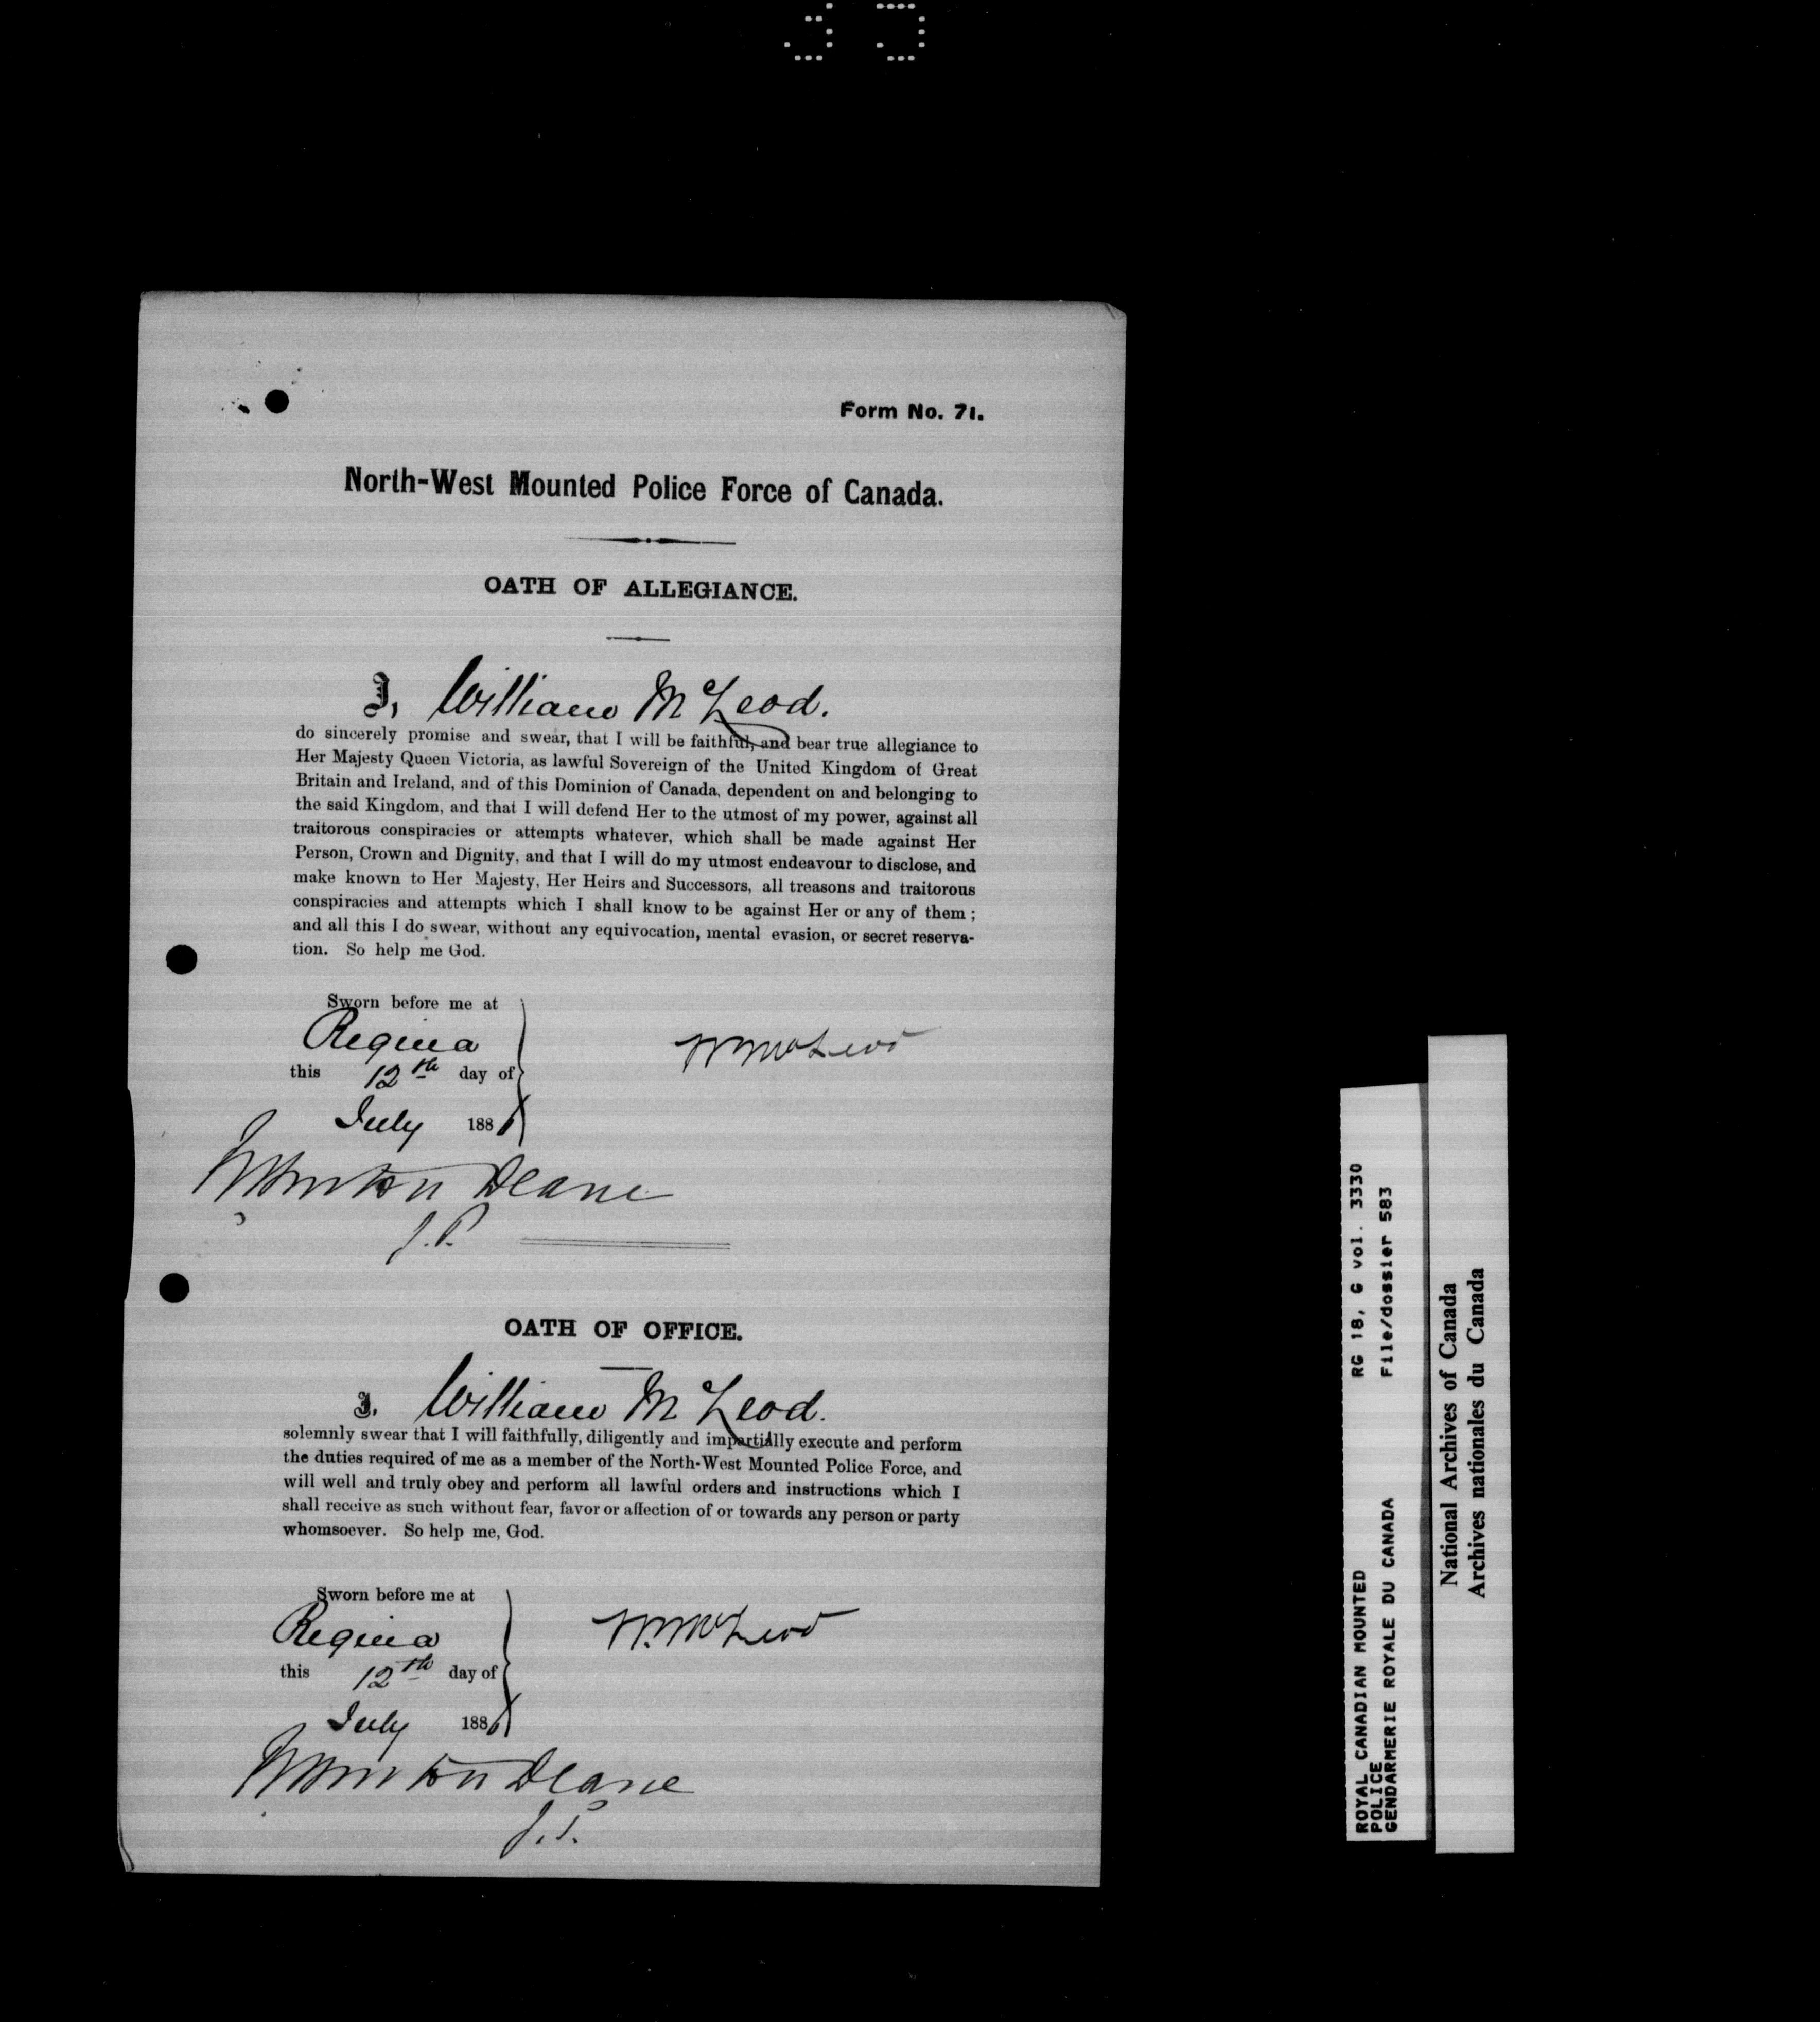 Form No. 71.
North-West Mounted Police Force of Canada.
OATH OF ALLEGIANCE.
I, William McLeod.
do sincerely promise and swear, that I will be faithful, and bear true allegiance to
Her Majesty Queen Victoria, as lawful Sovereign of the United Kingdom of Great
Britain and Ireland, and of this Dominion of Canada, dependent on and belonging to
the said Kingdom, and that I will defend Her to the utmost of my power, against all
traitorous conspiracies or attempts whatever, which shall be made against Her
Person, Crown and Dignity, and that I will do my utmost endeavour to disclose, and
make known to Her Majesty, Her Heirs and Successors, all treasons and traitorous
conspiracies and attempts which I shall know to be against Her or any of them ;
and all this I do swear, without any equivocation, mental evasion, or secret reserva-
tion. So help me God.
Sworn before me at
Regina
this 12th day of
July 1886
Wm McLeod
Deane
J.P.
OATH OF OFFICE.
I, William McLeod.
solemnly swear that I will faithfully, diligently and impartially execute and perform
the duties required of me as a member of the North-West Mounted Police Force, and
will well and truly obey and perform all lawful orders and instructions which I
shall receive as such without fear, favor or affection of or towards any person or party
whomsoever. So help me, God.
Sworn before me at
Regina
this 12th day of
July 1886
Wm McLeod
Deane
J.P.
ROYAL CANADIAN MOUNTED RG 18, G vol. 3330
POLICE
GENDARMERIE ROYALE DU CANADA File/dossier 583
National Archives of Canada
Archives nationales du Canada